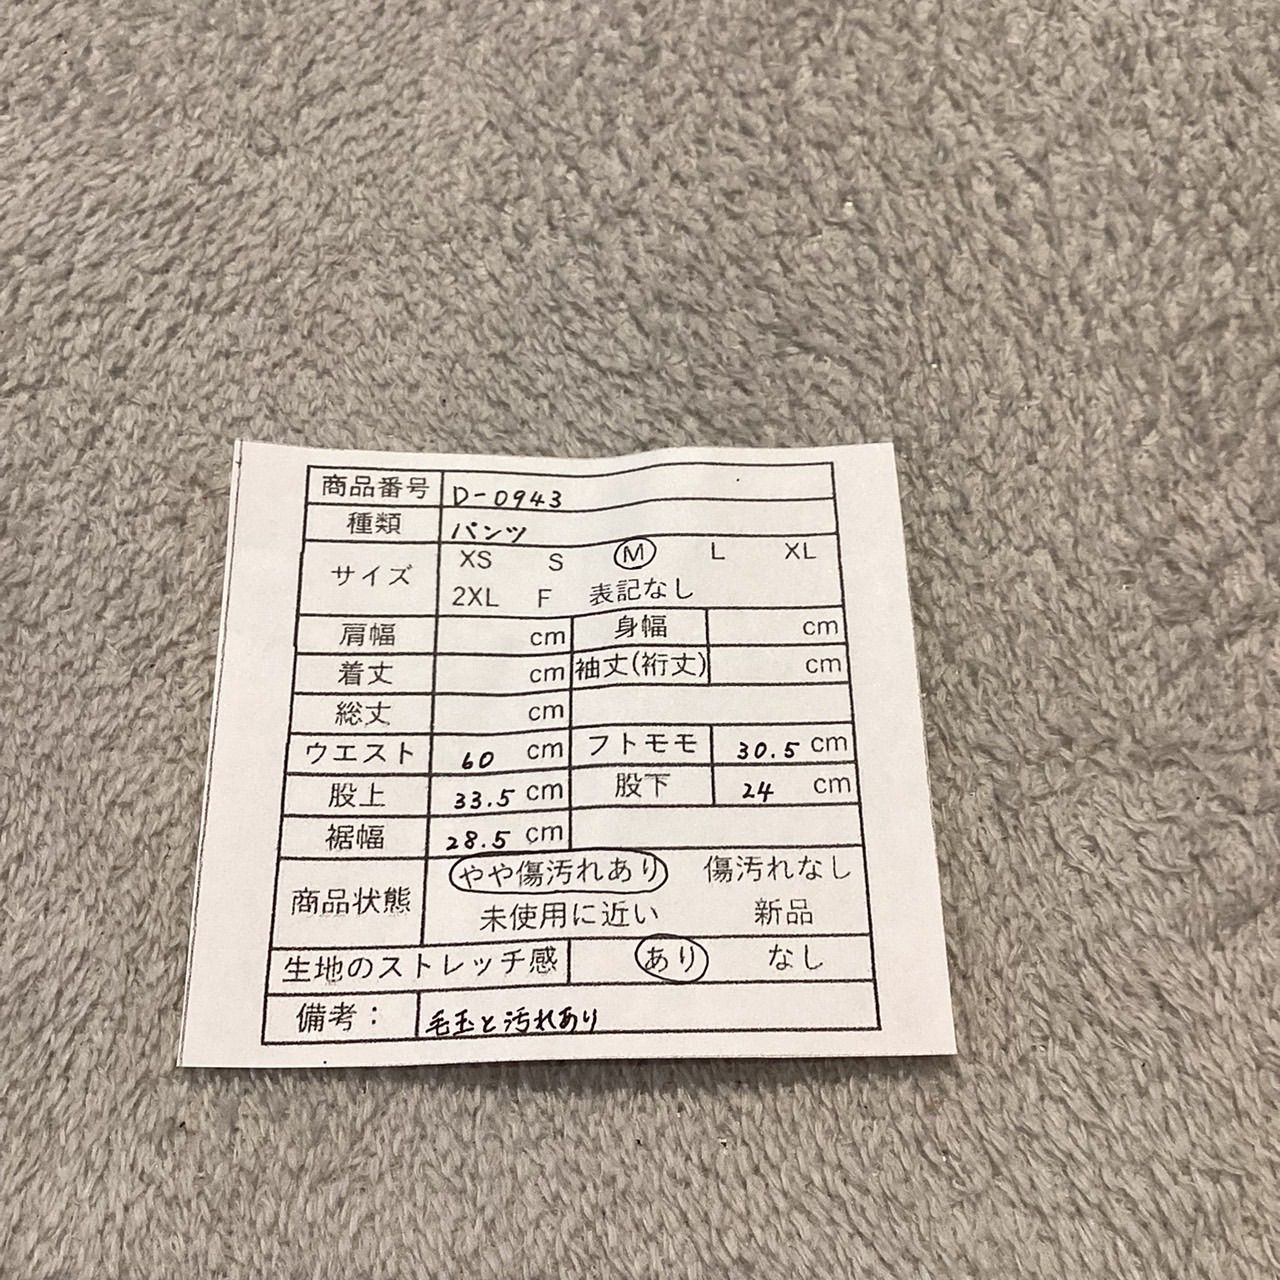 商品番号 D-0943
種類 パンツ
サイズ XS S M L XL
2XL F 表記なし
肩幅 cm 身幅 cm
着丈 cm 袖丈(裄丈) cm
総丈 cm
ウエスト 60 cm フトモモ 30.5 cm
股上 33.5 cm 股下 24 cm
裾幅 28.5 cm
商品状態 やや傷汚れあり 傷汚れなし
未使用に近い 新品
生地のストレッチ感 あり なし
備考： 毛玉と汚れあり